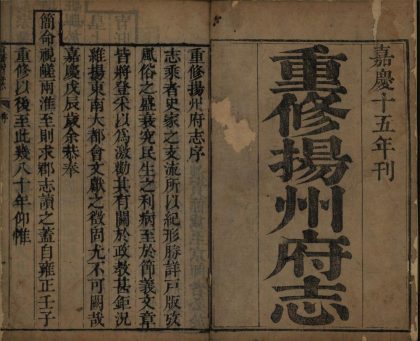 嘉慶十五年刊
重修揚州府志
重修揚州府志序
志乘者史家之支流所以紀形勝詳戸版攷
風俗之盛衰究民生之利病至於節義文章
皆將登采以為激勸其有關於政教甚鉅況
維揚東南大都會文獻之徵固尤不可闕哉
嘉慶戊辰歲余恭奉
簡命視鹺兩淮至則求郡志讀之蓋自雍正壬子
重修以後至此幾八十年仰惟